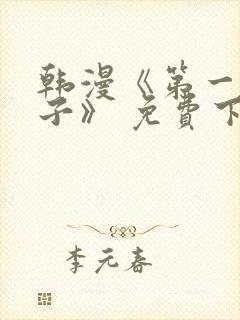 韩漫《第一
子》 免費下
李元春